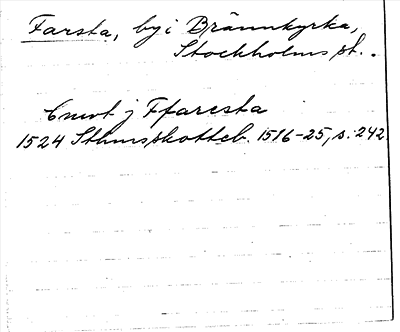 Farsta, by i Brännkyrka,
Stockholms st..
Cnwt j Ffaresta
1524 Sthmsskotteb. 1516-25, s. 242